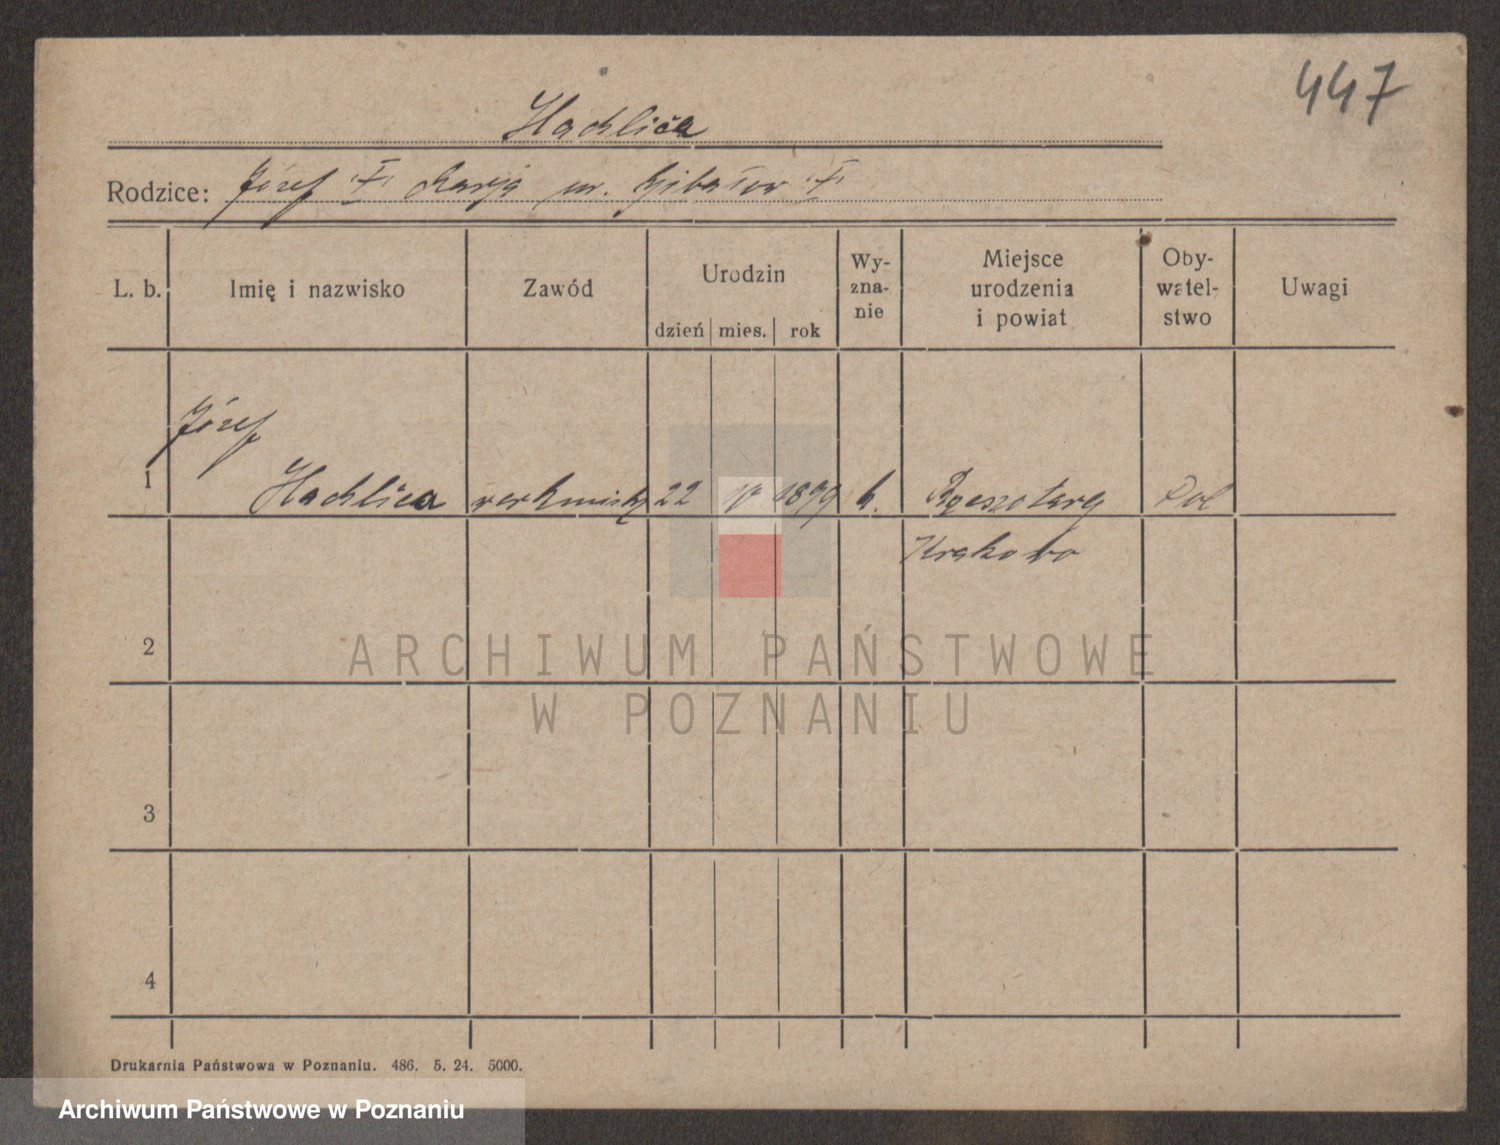 447
Hachlica
Rodzice: Józef "†" Marja ur. Gibałow "†"
L. b.
Imię i nazwisko
Zawód
Urodzin
dzień mies. rok
Wy-
zna-
nie
Miejsce
urodzenia
i powiat
Oby-
watel-
stwo
Uwagi
Józef
1 Hachlica werkmistrz 22 IV 1879 k. Rzeszotary Pol
Krakowo
2
3
4
ARCHIWUM PAŃSTWOWE
W POZNANIU
Drukarnia Państwowa w Poznaniu. 486. 5. 24. 5000.
Archiwum Państwowe w Poznaniu